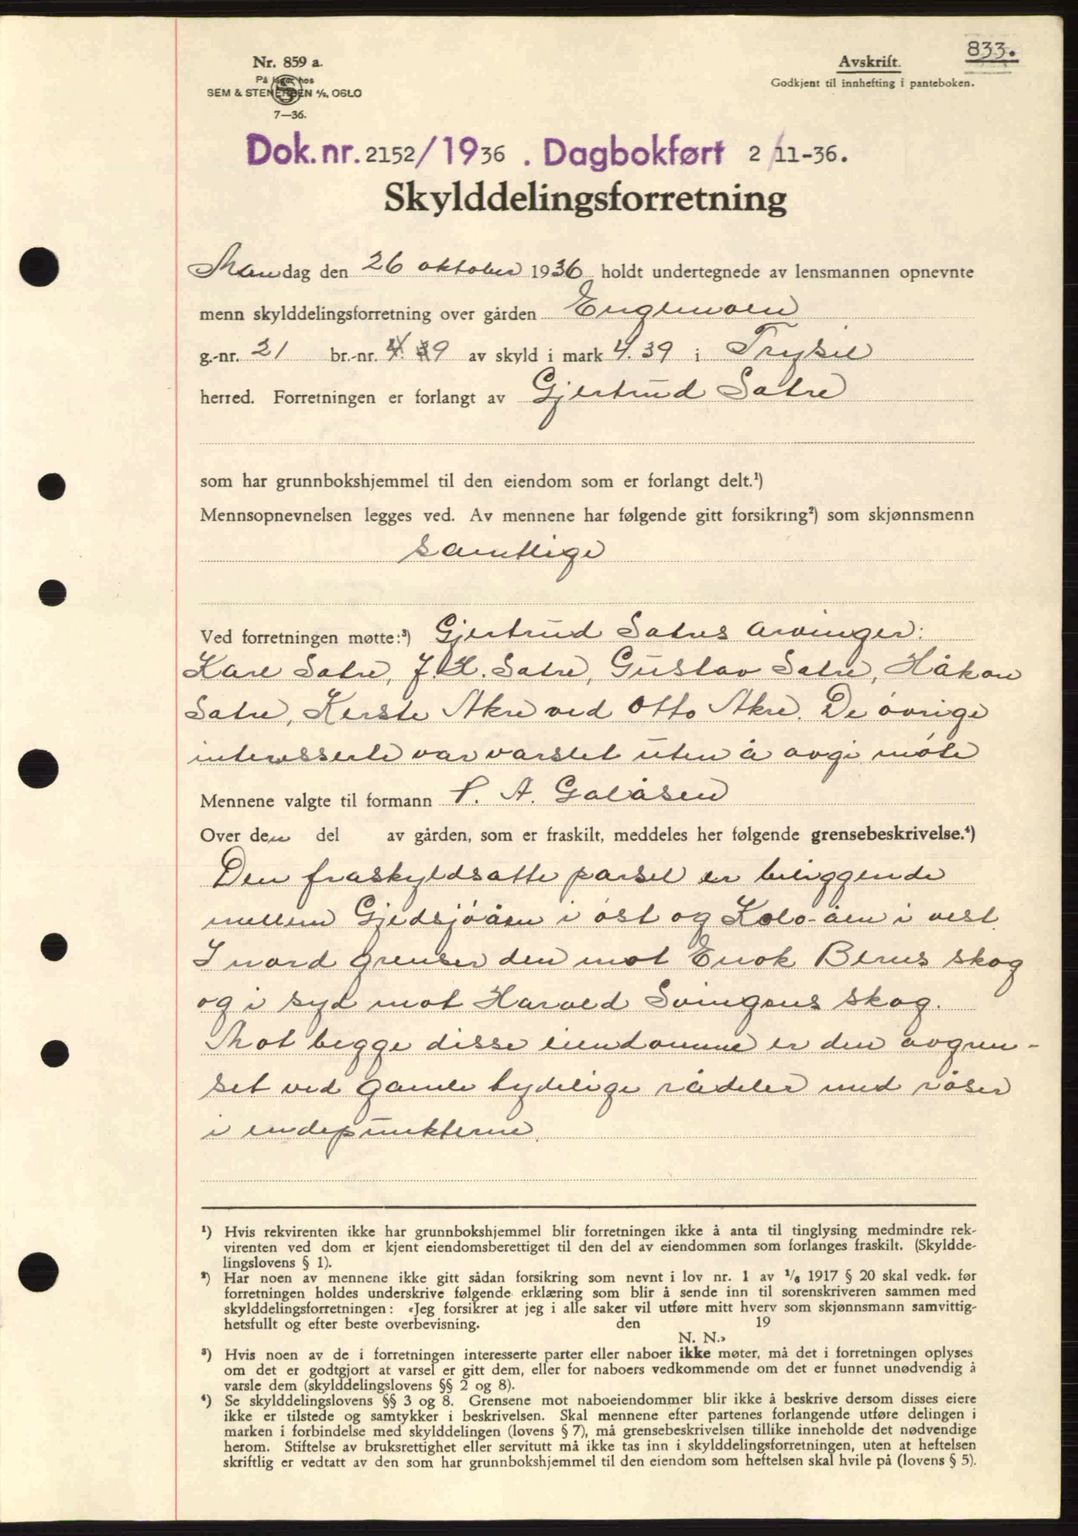 833.
Nr. 859 a.
På lager hos
SEM & STENERSEN A/S, OSLO
7—36.
Avskrift.
Godkjent til innhefting i panteboken.
Dok.nr. 2152/1936 . Dagbokført 2/11-36.
Skylddelingsforretning
Mandag den 26 oktober 1936 holdt undertegnede av lensmannen opnevnte
menn skylddelingsforretning over gården Englmoen
g.-nr. 21 br.-nr. 9 av skyld i mark 4.39 i Trysil
herred. Forretningen er forlangt av Gjertrud Satre
som har grunnbokshjemmel til den eiendom som er forlangt delt.¹)
Mennsopnevnelsen legges ved. Av mennene har følgende gitt forsikring²) som skjønnsmenn
samtlige
Ved forretningen møtte:³) Gjertrud Satres arvinger:
Kare Satre, J.K. Satre, Gustav Satre, Håkon
Satre, Kerste Akre ved Otto Akre. De øvrige
interesserte var varslet uten å avgi møte
Mennene valgte til formann P. A. Galåsen
Over den del av gården, som er fraskilt, meddeles her følgende grensebeskrivelse.⁴)
Den fraskyldsatte parsel er beliggende
mellem Gjedsjøåsen i øst og Kolo-åen i vest.
I nord grenser den mot Enok Berus skog
og i syd mot Harald Svingens skog.
Mot begge disse eiendomme er den avgren-
set ved gamle tydelige rådeler med røser
i endepunkterne.
¹) Hvis rekvirenten ikke har grunnbokshjemmel blir forretningen ikke å anta til tinglysing medmindre rek-
virenten ved dom er kjent eiendomsberettiget til den del av eiendommen som forlanges fraskilt. (Skyldde-
lingslovens § 1).
²) Har noen av mennene ikke gitt sådan forsikring som nevnt i lov nr. 1 av 1/6 1917 § 20 skal vedk. før
forretningen holdes underskrive følgende erklæring som blir å sende inn til sorenskriveren sammen med
skylddelingsforretningen: «Jeg forsikrer at jeg i alle saker vil utføre mitt hverv som skjønnsmann samvittig-
hetsfullt og efter beste overbevisning. den 19
N. N.»
³) Hvis noen av de i forretningen interesserte parter eller naboer ikke møter, må det i forretningen oplyses
om det er godtgjort at varsel er gitt dem, eller for naboers vedkommende om det er funnet unødvendig å
varsle dem (skylddelingslovens §§ 2 og 8).
⁴) Se skylddelingslovens §§ 3 og 8. Grensene mot naboeiendommer blir ikke å beskrive dersom disses eiere
ikke er tilstede og samtykker i beskrivelsen. Skal mennene efter partenes forlangende utføre delingen i
marken i forbindelse med skylddelingen (lovens § 7), må grensebeskrivelsen tillike inneholde det nødvendige
herom. Stiftelse av bruksrettighet eller servitutt må ikke tas inn i skylddelingsforretningen, uten at heftelsen
skriftlig er vedtatt av den som har grunnbokshjemmel til den eiendom som heftelsen skal hvile på (lovens § 5).